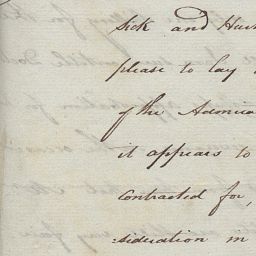 Sick and Hur
please to lay
of the Admira
it appears to
contracted for,
:sideration in